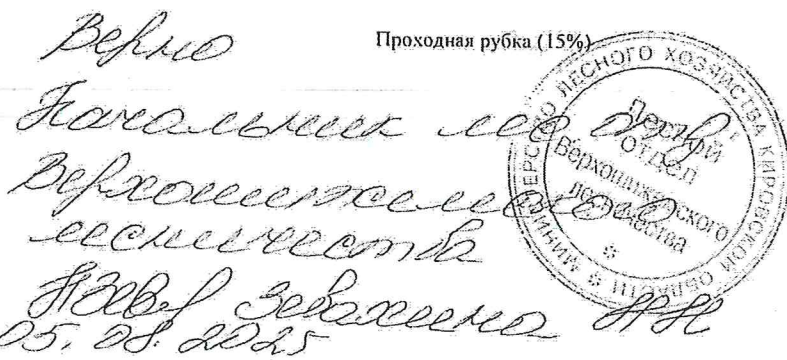 Проходная рубка (15%)
Верно
Начальник лес отд
Верхошижемского
лесничества
Зевахина НН
05.08.2025
МИНИСТЕРСТВО ЛЕСНОГО ХОЗЯЙСТВА КИРОВСКОЙ ОБЛАСТИ
Лесной
отдел
Верхошижемского
лесничества